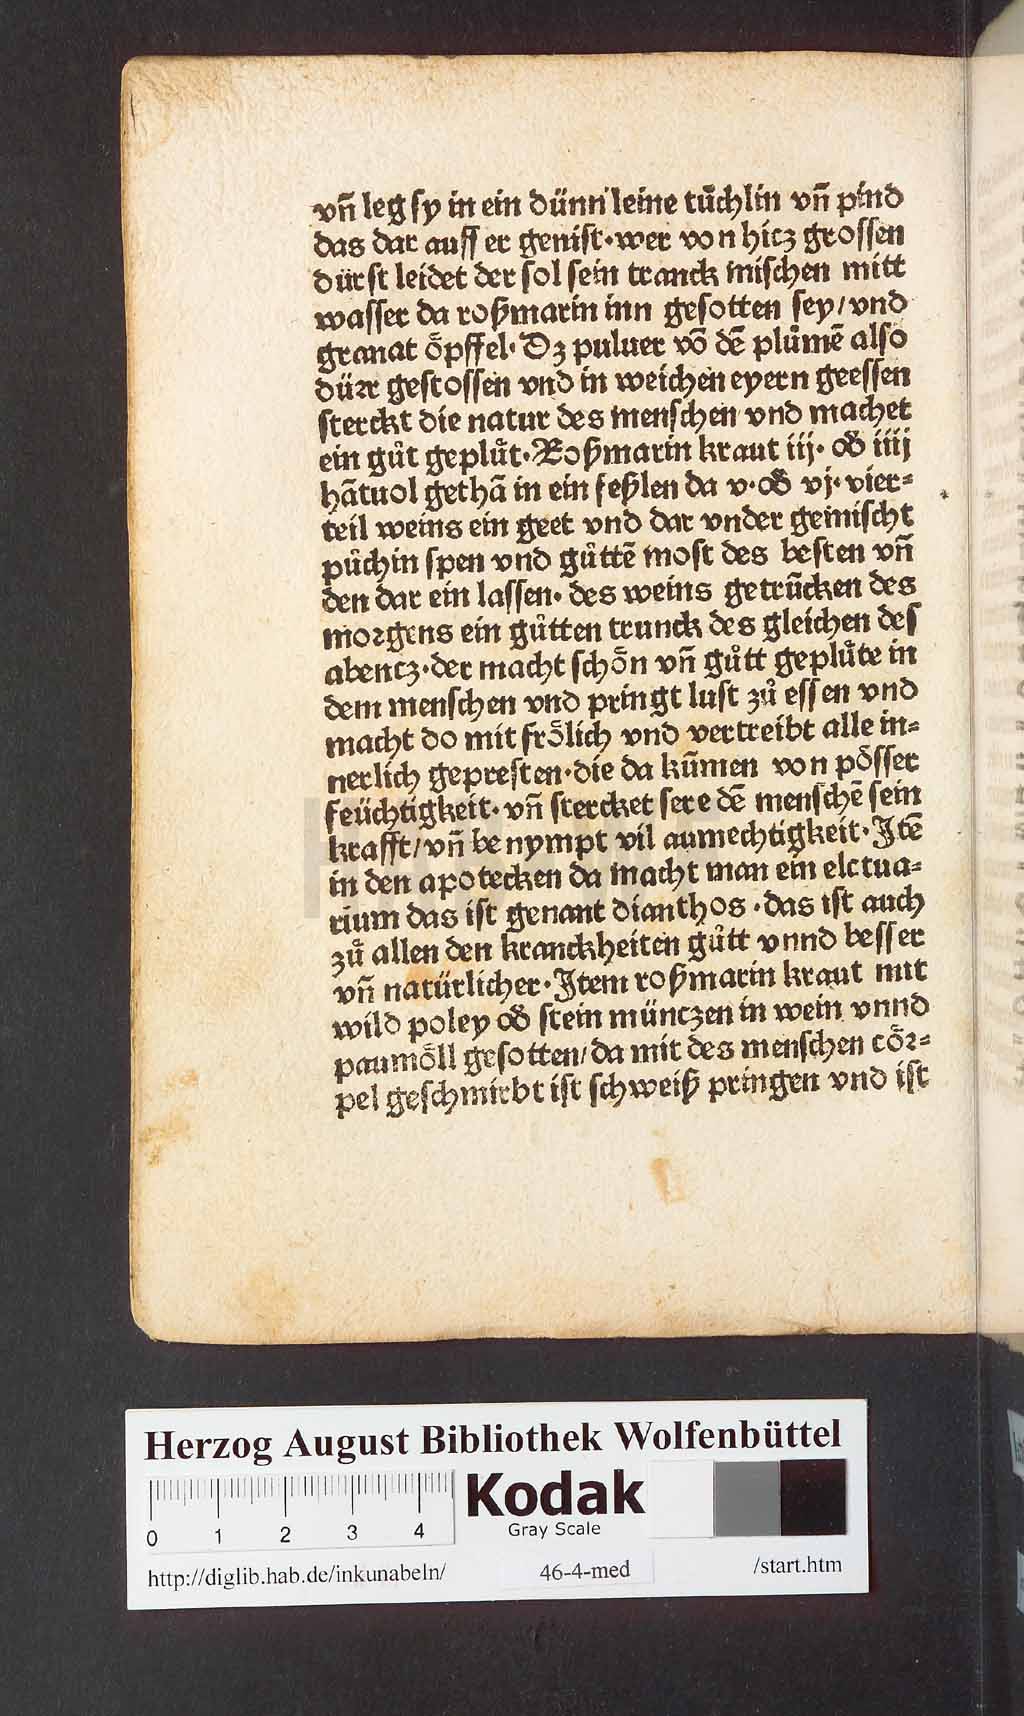 vn̄ leg sy in ein dünn leine tuͤchlin vn̄ pind
das dar auff er genist·wer von hicz grossen
dürst leidet der sol sein tranck mischen mitt
wasser da roßmarin inn gesotten sey/vnd
granat oͤpffel· Dz puluer vō dē pluͦmē also
dürr gestossen vnd in weichen eyern geessen
sterckt die natur des menschen vnd machet
ein guͦt gepluͤt·Roßmarin kraut iij· od̕ iiij
hātuol gethā in ein feßlen da v·od̕ vj·vier=
teil weins ein geet vnd dar vnder gemischt
puͦchin spen vnd guͦttē most des besten vn̄
den dar ein lassen· des weins getrūcken des
morgens ein guͦtten trunck des gleichen des
abentz·der macht schoͤn vn̄ guͦtt gepluͤte in
dem menschen vnd pringt lust zuͦ essen vnd
macht do mit froͤlich vnd vertreibt alle in=
nerlich gepresten·die da kūmen von poͤsser
feüchtigkeit· vn̄ stercket sere dē menschē sein
krafft/vn̄ be nympt vil aumechtigkeit·Itē
in den apotecken da macht man ein elctua=
rium das ist genant dianthos ·das ist auch
zuͦ allen den kranckheiten guͦtt vnnd besser
vn̄ natürlicher·Item roßmarin kraut mit
wild poley od̕ stein müntzen in wein vnnd
paumoͤll gesotten/da mit des menschen coͤr=
pel geschmirbt ist schweiß pringen vnd ist
Herzog August Bibliothek Wolfenbüttel
0 1 2 3 4
Kodak
Gray Scale
http://diglib.hab.de/inkunabeln/ 46-4-med /start.htm